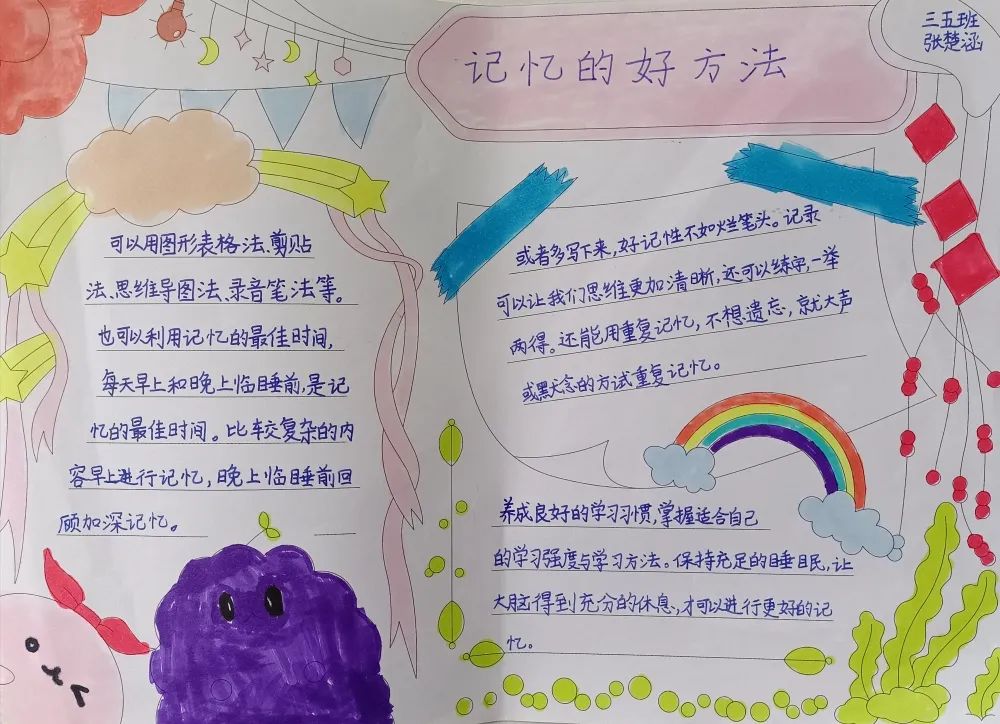 三五班
张楚涵
记忆的好方法
可以用图形表格法、剪贴
法、思维导图法、录音笔法等。
也可以利用记忆的最佳时间,
每天早上和晚上临睡前,是记
忆的最佳时间。比较复杂的内
容早上进行记忆,晚上临睡前回
顾加深记忆。
或者多写下来,好记性不如烂笔头。记录
可以让我们思维更加清晰,还可以练字,一举
两得。还能用重复记忆,不想遗忘,就大声
或默念的方试重复记忆。
养成良好的学习习惯,掌握适合自己
的学习强度与学习方法。保持充足的睡眠,让
大脑得到充分的休息,才可以进行更好的记
忆。